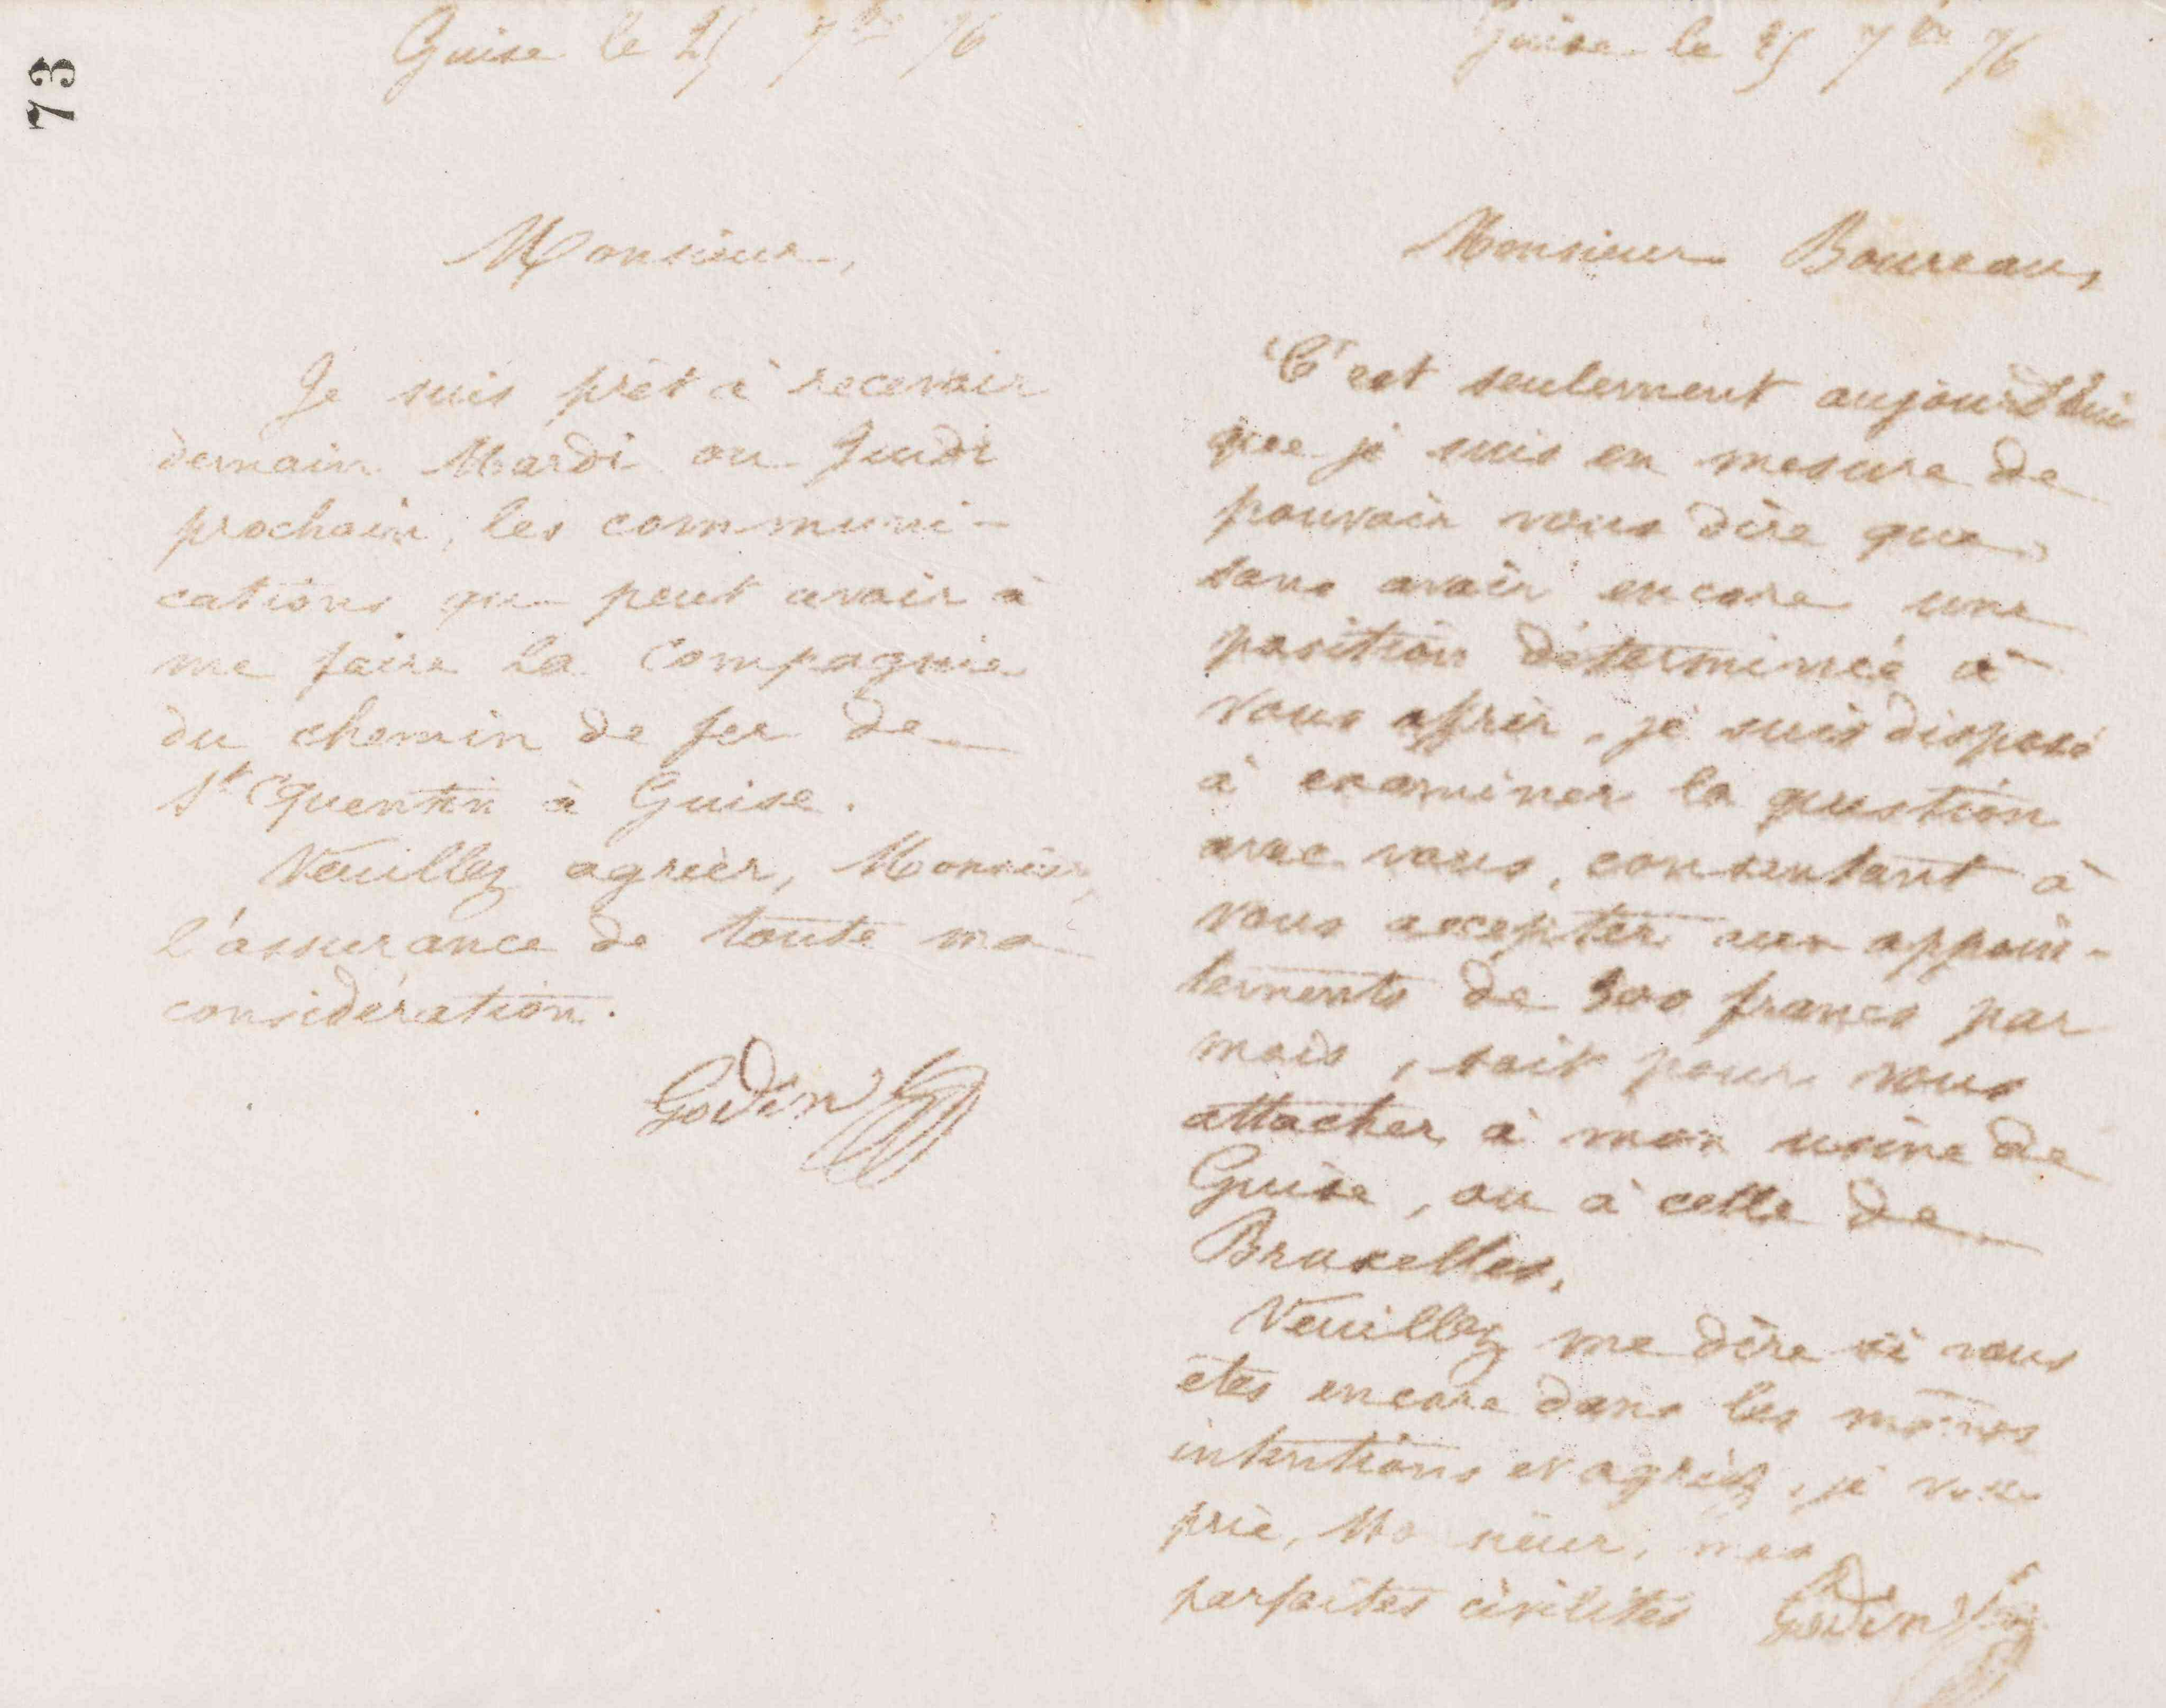 73
Guise le 25 7bre 76
Monsieur,
Je suis prêt à recevoir
demain Mardi ou Jeudi
prochain, les communi-
cations que peut avoir à
me faire la Compagnie
du chemin de fer de
St Quentin à Guise.
Veuillez agréer, Monsieur,
l'assurance de toute ma
considération.
Godin
Guise le 25 7bre 76
Monsieur Boureau,
C'est seulement aujourd'hui
que je suis en mesure de
pouvoir vous dire que,
sans avoir encore une
position déterminée à
vous offrir, je suis disposé
à examiner la question
avec vous, consentant à
vous accepter aux appoin-
tements de 300 francs par
mois, soit pour vous
attacher à mon usine de
Guise, ou à celle de
Bruxelles.
Veuillez me dire si vous
etes encore dans les mêmes
intentions et agréez, je vous
prie, Monsieur, mes
parfaites civilités Godin